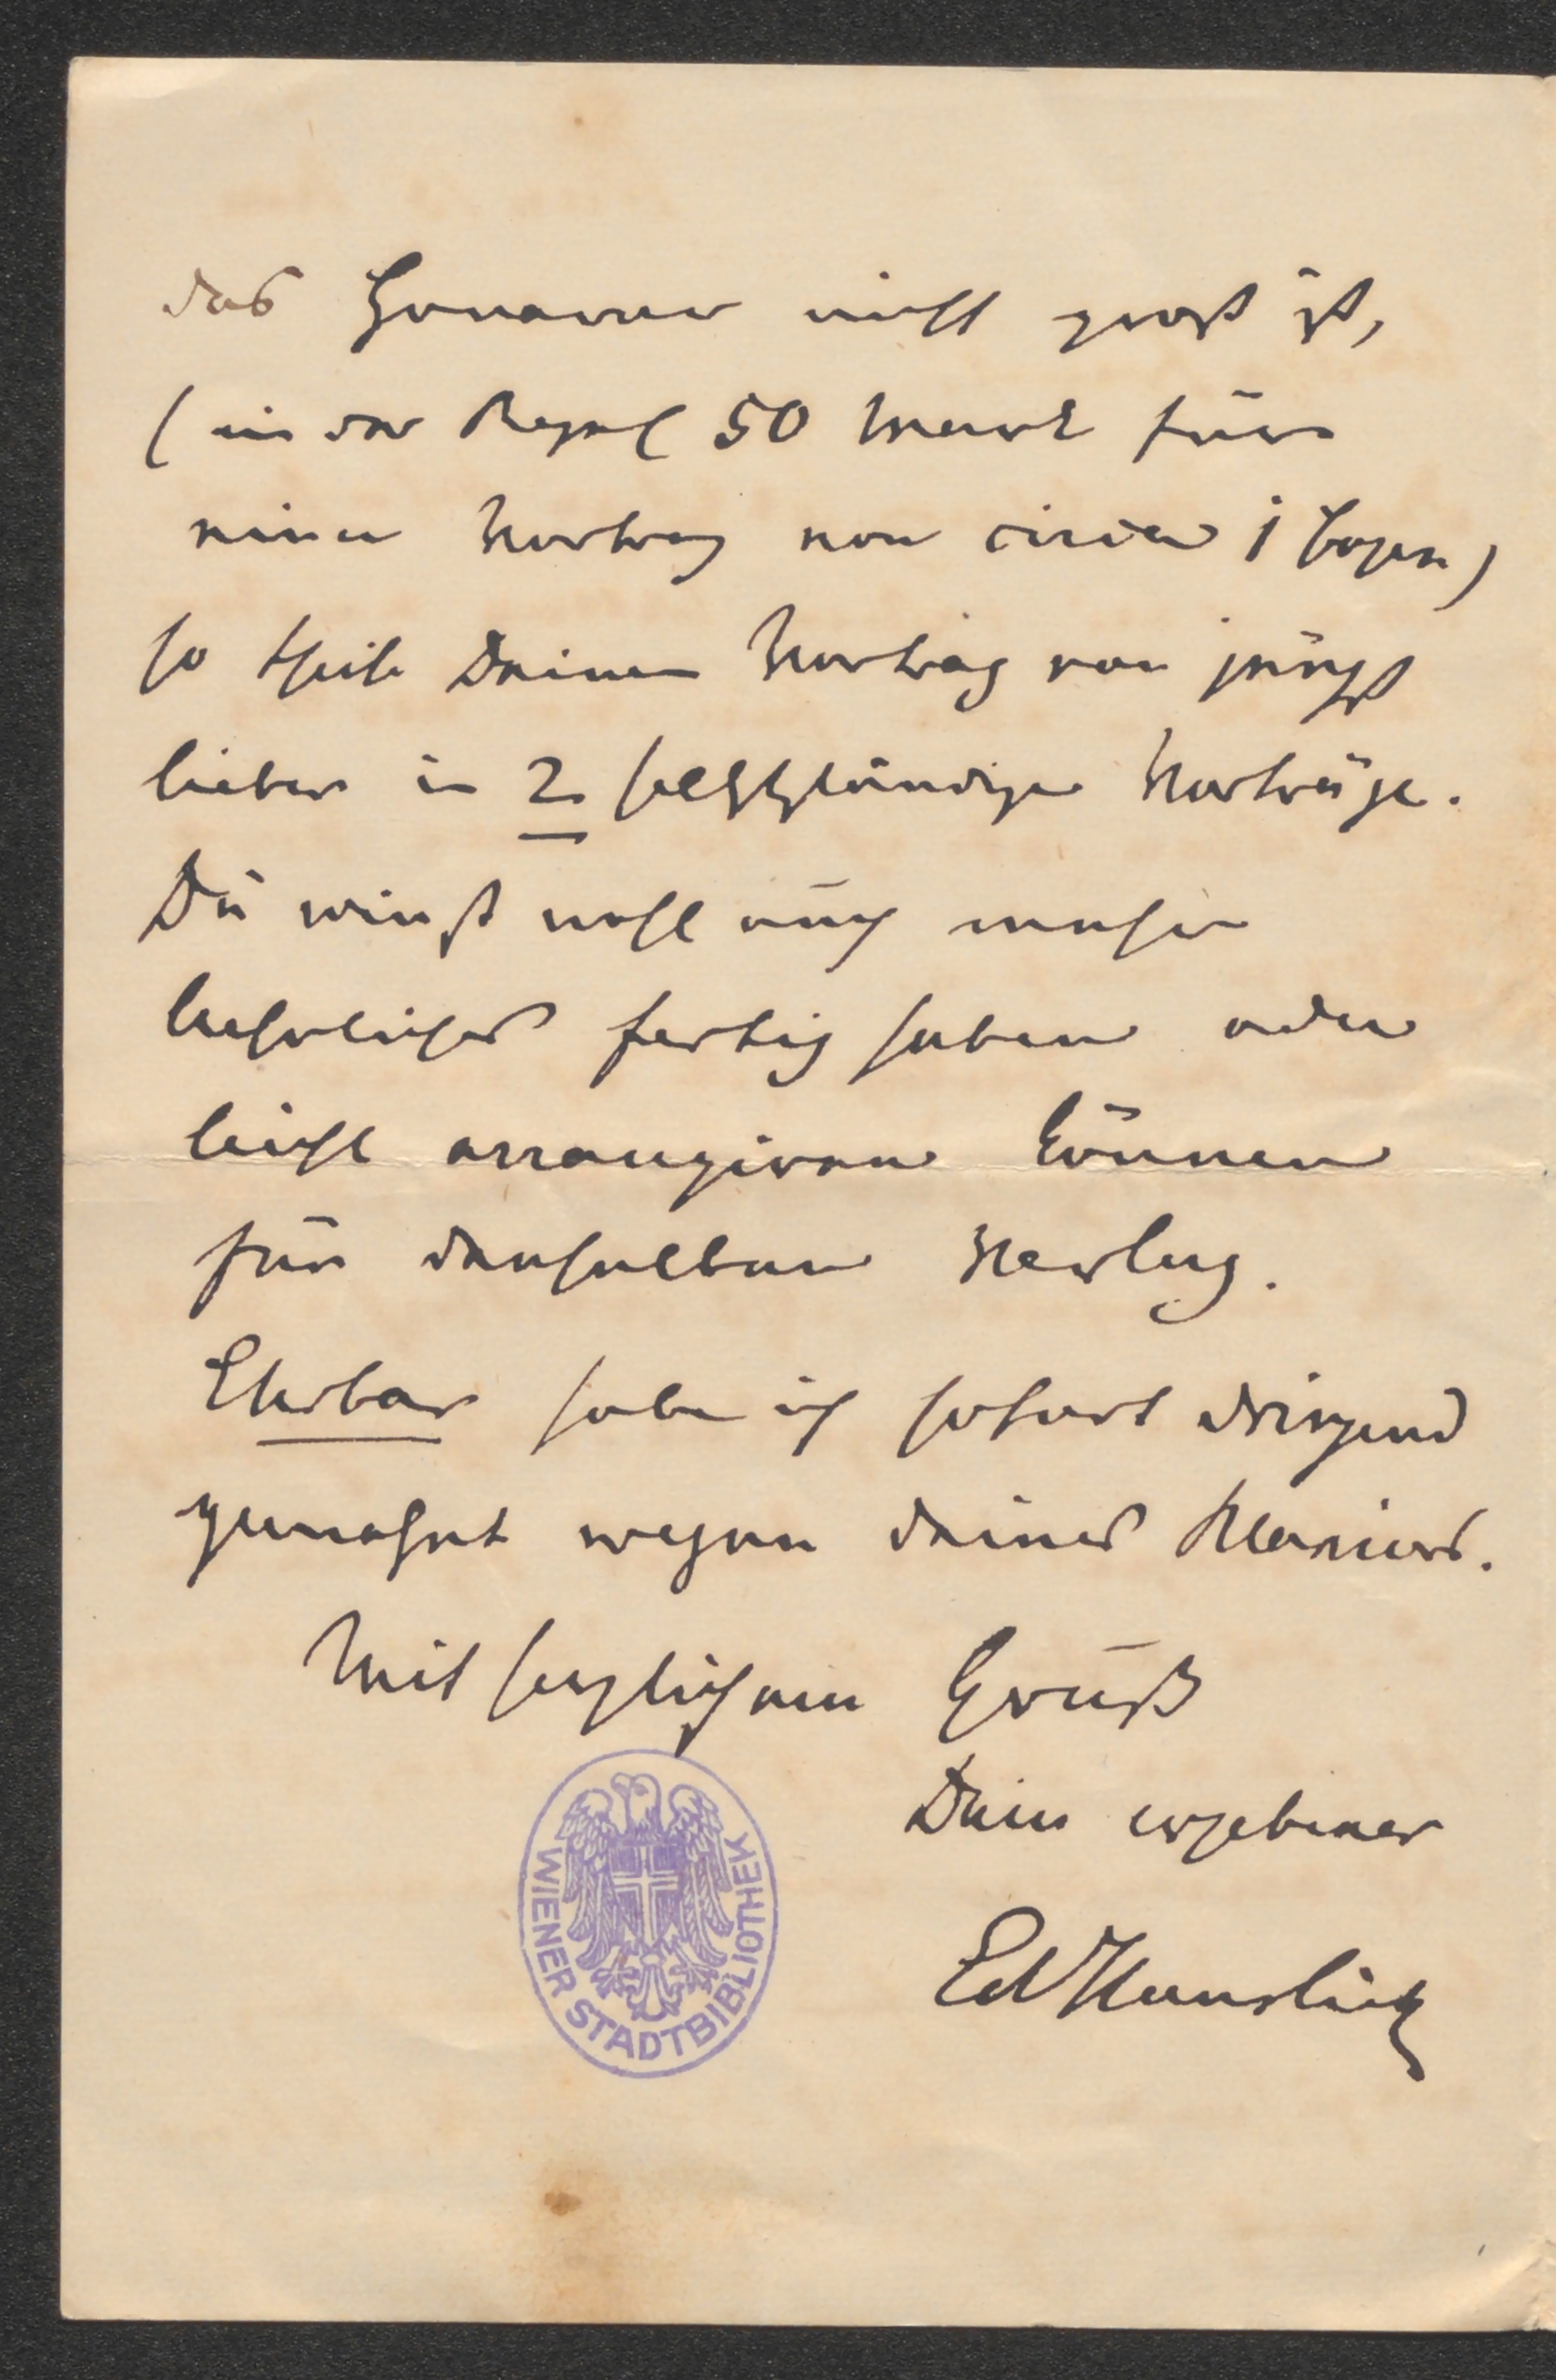 das Honorar nicht groß ist,
(in der Regel 50 Mark für
einen Vortrag von circa 1 Bogen)
so theile Deinen Vortrag von jüngst
lieber in 2 selbstständige Vorträge.
Du wirst wohl auch mehr
Aehnliches fertig haben oder
leicht arrangiren können
für denselben Verlag.
Ehrbar habe ich sofort dringend
gemahnt wegen deines Klaviers.
Mit herzlichem Gruß
Dein ergebener
EdHanslick
WIENER STADTBIBLIOTHEK